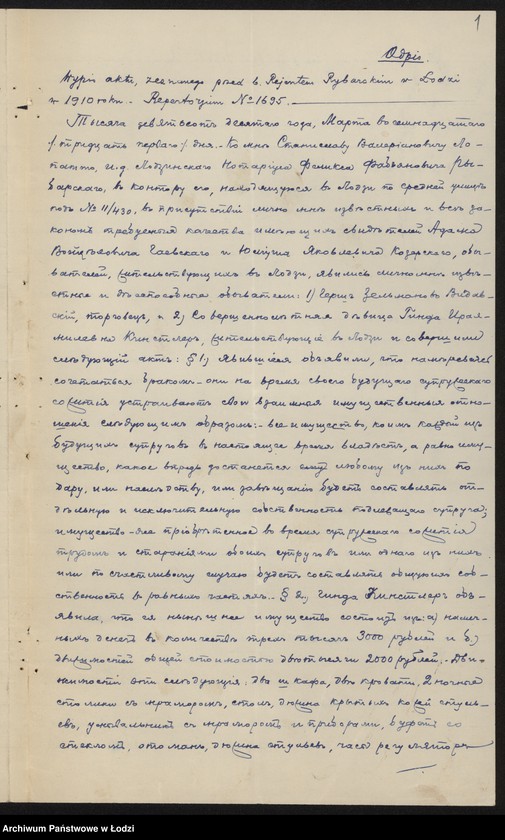 1
Odpis.
Wypis aktu, zeznanego przed b. Rejentem Rybarskim w Łodzi
w 1910 roku. Repertorjum № 1695.
Тысяча девятьсотъ десятаго года, Марта восемнадцатаго
/тридцать перваго/ дня. Ко мнѣ Станиславу Валеріановичу Ло-
патто, и.д. Лодзинскаго Нотаріуса Феликса Фабьяновича Ры-
барскаго, въ контору его, находящуюся въ Лодзи по средней улицѣ
подъ № 11/430, въ присутствіи лично мнѣ извѣстныхъ и всѣ за-
кономъ требуемыя качества имѣющихъ свидѣтелей Адама
Войцѣховича Гаевскаго и Яковлевича Козарскаго, обы-
вателей, жительствующихъ въ Лодзи, явились лично мнѣ извѣ-
стные и дѣеспособные обыватели: 1) Герш Зельмановъ Видав-
скій, торговецъ, и 2) Совершеннолѣтняя дѣвица Гинда Изра-
илевна Кинстлеръ, жительствующіе въ Лодзи и совершили
слѣдующій актъ: § 1) Явившіеся объявили, что намѣреваясь
сочетаться бракомъ - они на время своего будущаго супружескаго
сожитія устраиваютъ свои взаимныя имущественныя отно-
шенія слѣдующимъ образомъ: - все имущество, коимъ каждый изъ
будущихъ супруговъ въ настоящее время владѣетъ, а равно иму-
щество, какое впредь достанется любому изъ нихъ по
дару, или наслѣдству, или завѣщанію будетъ составлять от-
дѣльную и исключительную собственность подлежащаго супруга;
имущество-же пріобрѣтенное во время супружескаго сожитія
трудомъ и стараніями обоихъ супруговъ или одного изъ нихъ
или по счастливому случаю будетъ составлять общую ихъ соб-
ственность въ равныхъ частяхъ. - § 2) Гинда Кинстлеръ объ-
явила, что ея нынѣшнее имущество состоитъ изъ: а) налич-
ныхъ денегъ въ количествѣ трехъ тысячъ 3000 рублей и б)
движимостей общей стоимостью двѣ тысячи 2000 рублей. - Дви-
жимости эти слѣдующія: два шкафа, двѣ кровати, 2 ночные
столика съ мраморомъ, столъ, дюжина крытыхъ кожей стуль-
евъ, умывальникъ съ мраморомъ и приборами, буфетъ со
стекломъ, отоманъ, дюжина стульевъ, часы регуляторъ
Archiwum Państwowe w Łodzi